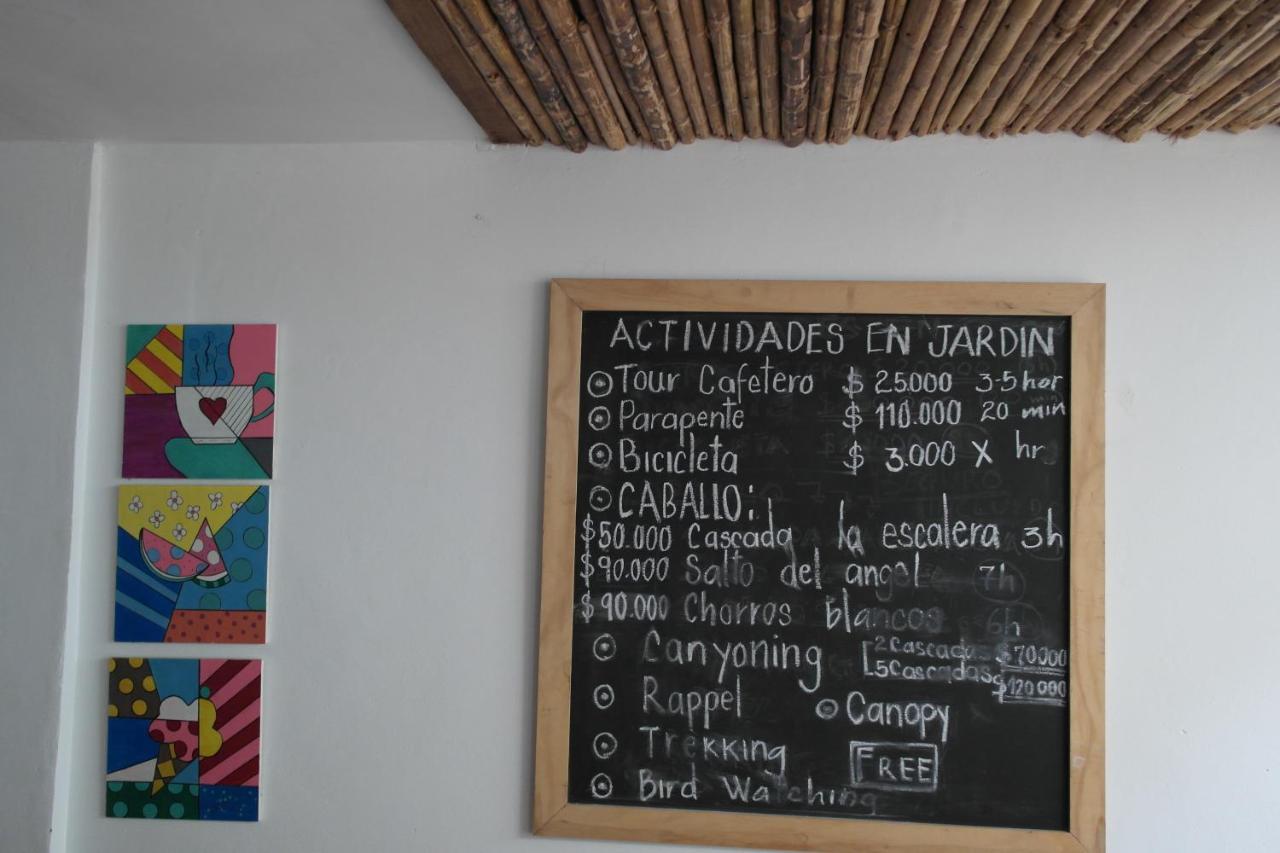 ACTIVIDADES EN JARDIN
Tour Cafetero $ 25.000 3-5 hor
Parapente $ 110.000 20 min
Bicicleta $ 3.000 X hr
CABALLO:
$50.000 Cascada la escalera 3h
$90.000 Salto del angel 7h
$90.000 Chorros blancos 6h
Canyoning [2 Cascadas $70.000
[5 Cascadas $120.000
Rappel Canopy
Trekking FREE
Bird Watching